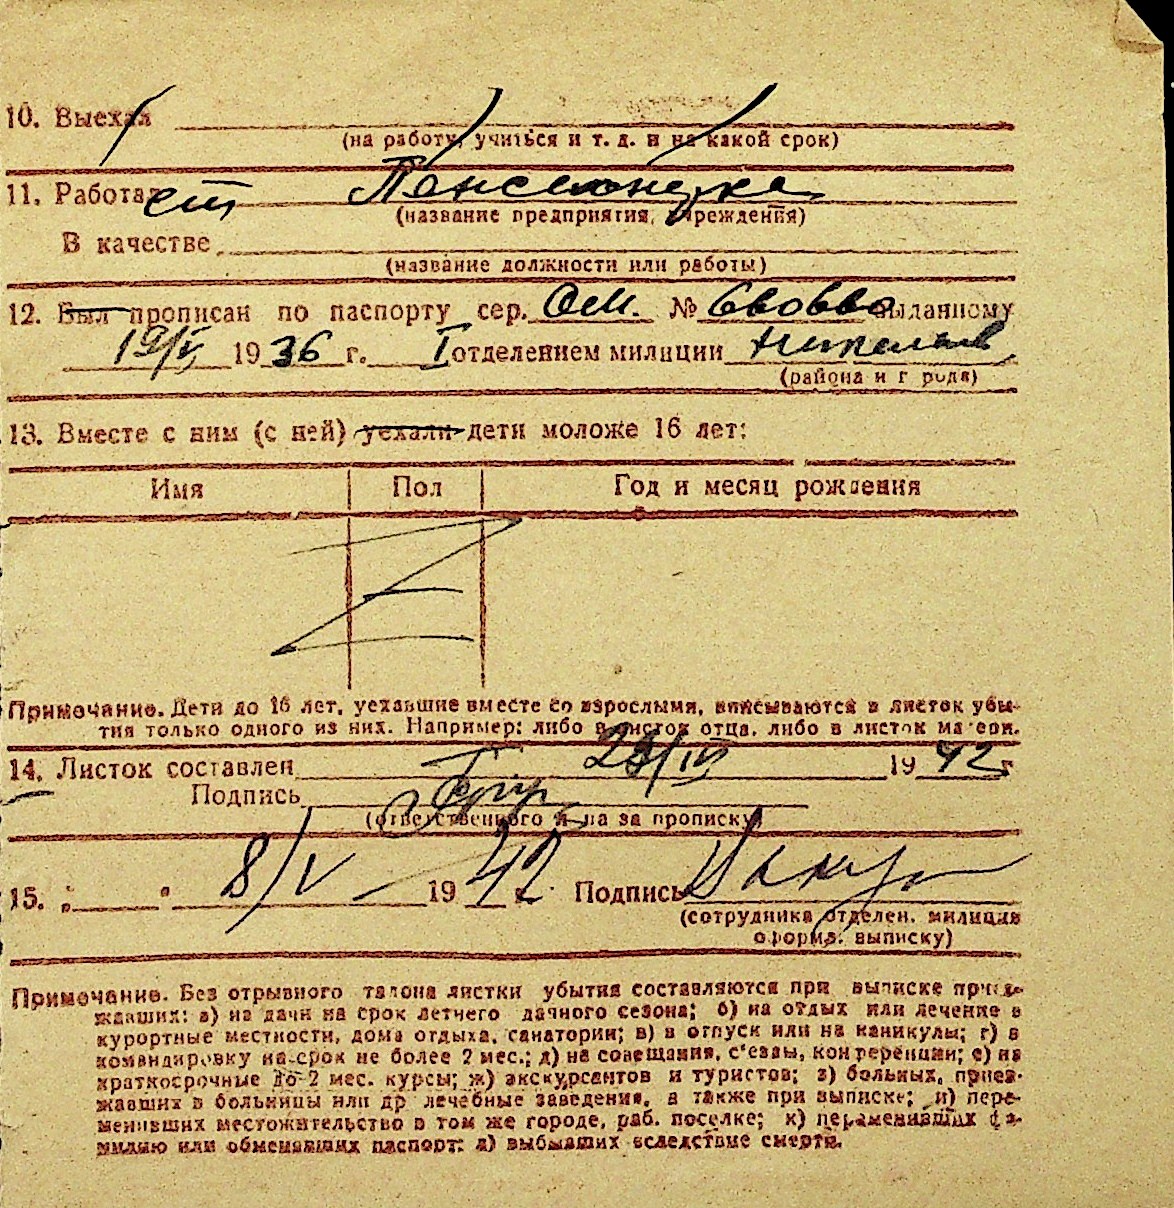 10. Выехал
(на работу, учиться и т. д. и на какой срок)
11. Работает Пенсионерка
(название предприятия, учреждения)
В качестве
(название должности или работы)
12. Был прописан по паспорту сер. ОМ. № выданному
19/V 1936 г. I отделением милиции
(района и города)
13. Вместе с ним (с ней) уехали дети моложе 16 лет:
Имя Пол Год и месяц рождения
Примечание. Дети до 16 лет, уехавшие вместе со взрослыми, вписываются в листок убы-
тия только одного из них. Например: либо в листок отца, либо в листок матери.
14. Листок составлен 29/IV 1942 г
Подпись
(ответственного л-ца за прописку)
15. " " 8/V 1942 г. Подпись
(сотрудника отделен. милиции
оформл. выписку)
Примечание. Без отрывного талона листки убытия составляются при выписке приез-
жавших: а) на дачи на срок летнего дачного сезона; б) на отдых или лечение в
курортные местности, дома отдыха, санатории; в) в отпуск или на каникулы; г) в
командировку на срок не более 2 мес.; д) на совещания, с'езды, конференции; е) на
краткосрочные до 2 мес. курсы; ж) экскурсантов и туристов; з) больных, приез-
жавших в больницы или др лечебные заведения, а также при выписке; и) пере-
менивших местожительство в том же городе, раб. поселке; к) переменивших фа-
милию или обменявших паспорт; л) выбывших вследствие смерти.